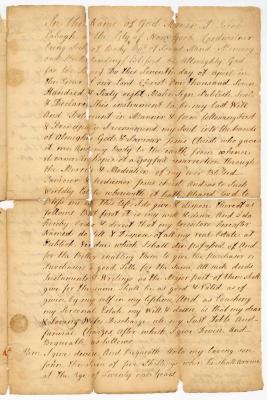 In the Name of God Amen I Isaac
Labagh of the City of New York Cordwainer
being Sick of Body but of Sound Mind Memory
and Understanding Blessed be Almighty God
for the same Do this Seventh day of April in
the Year of our Lord Christ One Thousand Seven
Hundred & Sixty eight Make Sign Publish Seal
& Declare this instrument to be my last Will
And Testament in Manner & form following First
& Principally I recommend my Soul into the hands
of Almighty God & Saviour Jesus Christ who gave
it me and my Body to the earth from whence
it came in hopes of a Joyfull resurrection through
the Merits & Mediation of my ever blessed
Saviour & redeemer Jesus christ And as to that
Worldly Estate wherewith it hath pleased God to
bless me in this life I do give & dispose thereof as
follows But first it is my will & desire And I do
hereby order & direct that my Executors hereafter
Named do sell & Dispose of all my real Estate at
Publick Vendue which I shall die possessed of And
for the better enabling them to give the Purchaser or
Purchasers a good title for the same All such deeds
Instruments & Writings as the Major part of them shall
give for the same shall be as good & Valid as if
given by my self in my lifetime And as touching
my Personal Estate my Will & desire is that my dear
& loving Wife Discharge all my Just Debts And
funeral Charges After which I give Devise And
Bequeath as follows
Item I give devise And bequeath Unto my loving son
John the Sum of five Shillings when he shall arrive
at the Age of Twenty one Years